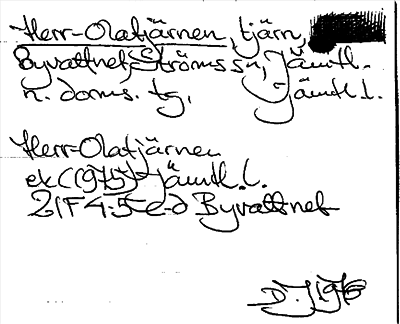 Herr-Olatjärnen, tjärn,
Byvattnet Ströms sn, Jämtl.
n. doms. tg, Jämtl.l.
Herr-Olatjärnen
ek (1975) Jämtl.l.
21F4-5c-d Byvattnet
D.J 1976